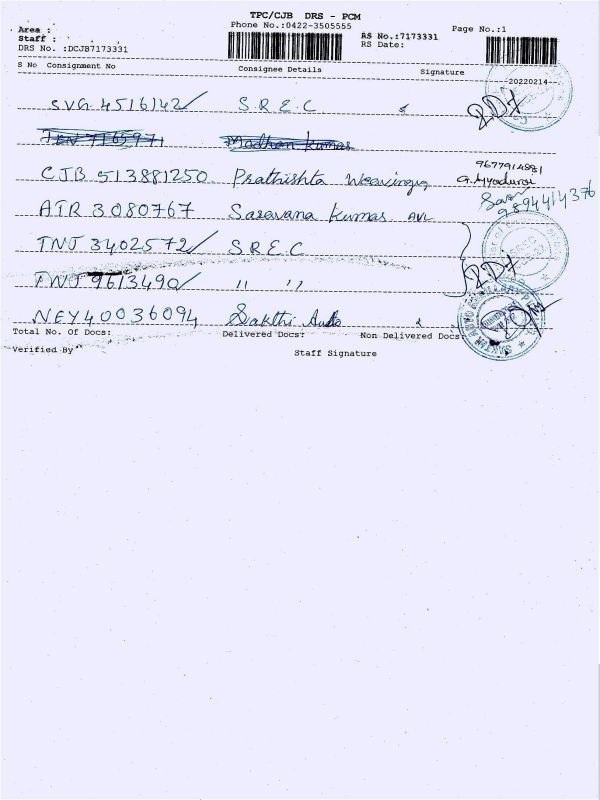 TPC/CJB DRS - PCM
Area : Phone No.:0422-3505555 Page No.:1
Staff : RS No.:7173331
DRS No. :DCJB7173331 RS Date:
S No Consignment No Consignee Details Signature
20220214
SVG 4516142/ S.R.E.C
Madhan Kumar
9677914881
CJB 513881250 Prathishta Weavinging
ATR 3080767 Saravana Kumar 9894414376
TNJ 3402572/ S.R.E.C
TNJ 9613490/ ,, ,,
NEY40036094 Sakthi Auto
Total No. Of Docs: Delivered Docs: Non Delivered Docs:
Verified By Staff Signature